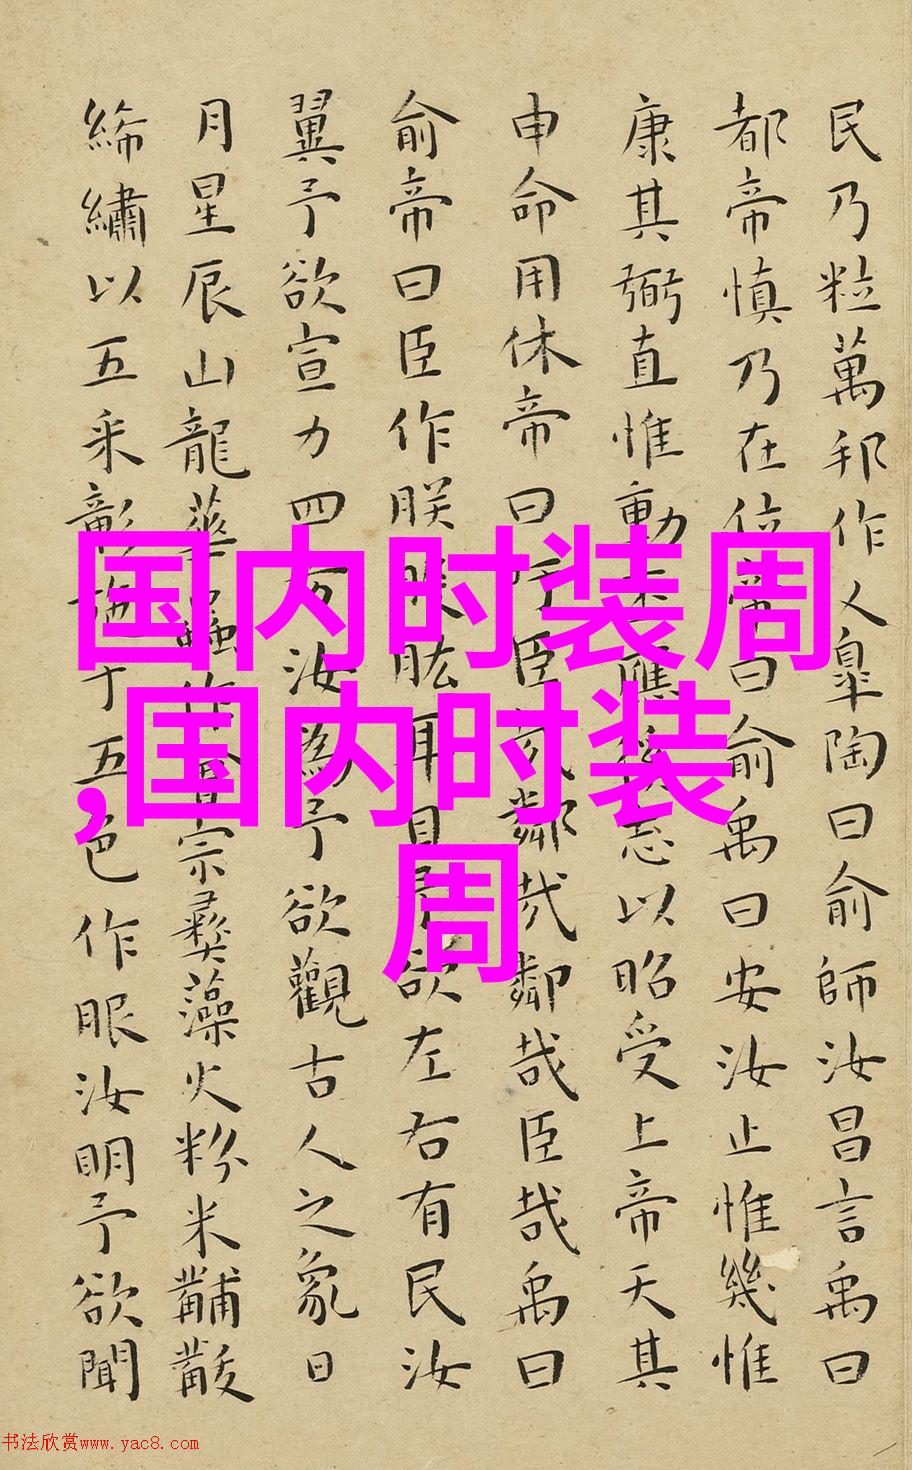 民乃粒萬邦作乂皐陶曰俞師汝昌言禹曰
都帝慎乃在位帝曰俞禹曰安汝止惟幾惟
康其弼直惟動丕應徯志以昭受上帝天其
申命用休帝曰吁臣哉鄰哉鄰哉臣哉禹曰
俞帝曰臣作朕股肱耳目予欲左右有民汝
翼予欲宣力四方汝為予欲觀古人之象日
月星辰山龍華蟲作會宗彝藻火粉米黼黻
絺繡以五采彰施于五色作服汝明予欲聞
国内时装周
,国内时装
周
书法欣赏www.yac8.com